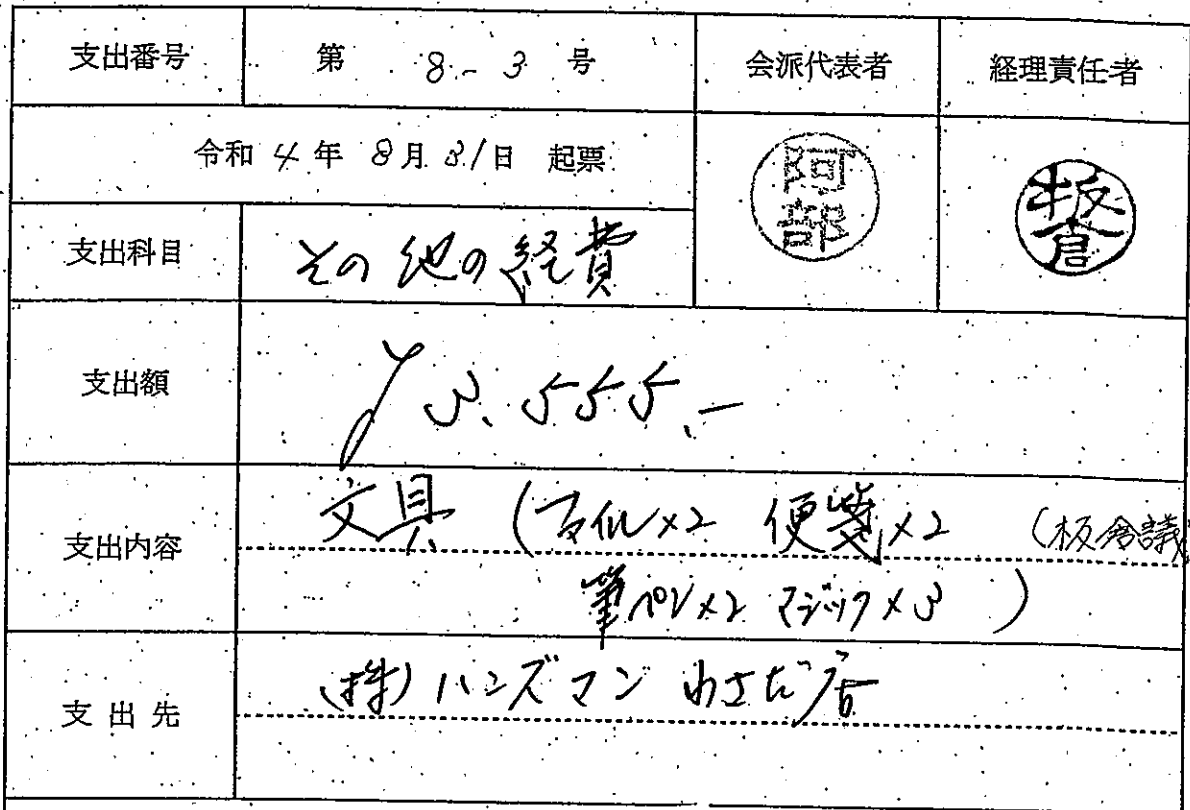 支出番号 第 8-3 号 会派代表者 経理責任者
令和 4 年 8 月 31 日 起票 阿部 板倉
支出科目 その他の経費
支出額 ¥3,555.-
支出内容 文具 ( ×2 便箋×2 (板倉議
筆ペン×2 マジック×3 )
支出先 (株)ハンズマン わさだ店